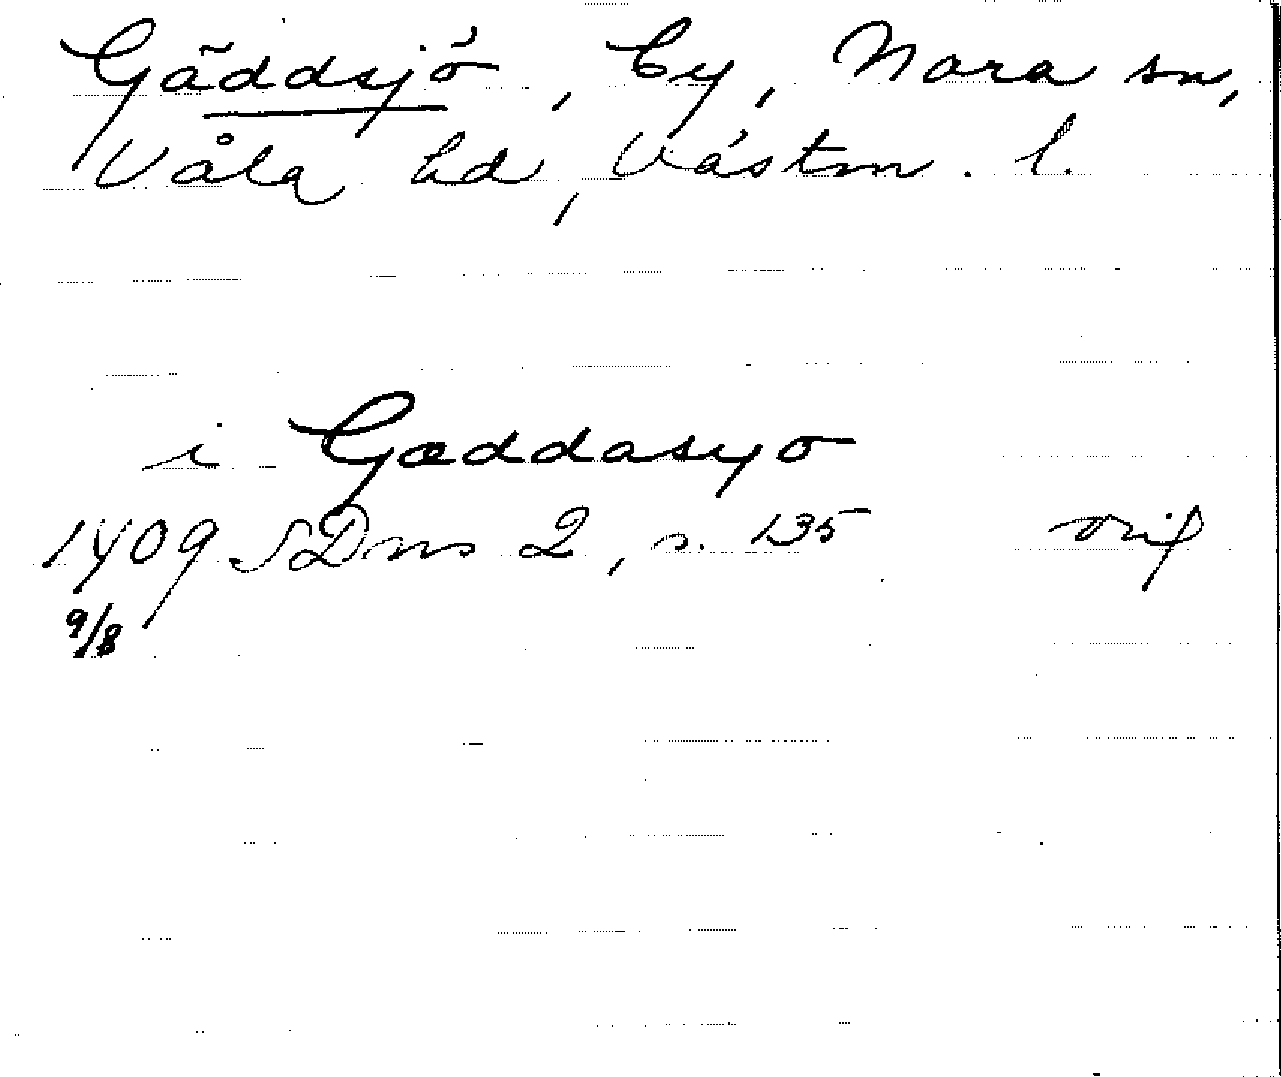 Gäddsjö, by, Nora sn,
Våla hd, Västm. l.
i Gæddasyo
1409 SDns 2, s. 135 orig
9/8